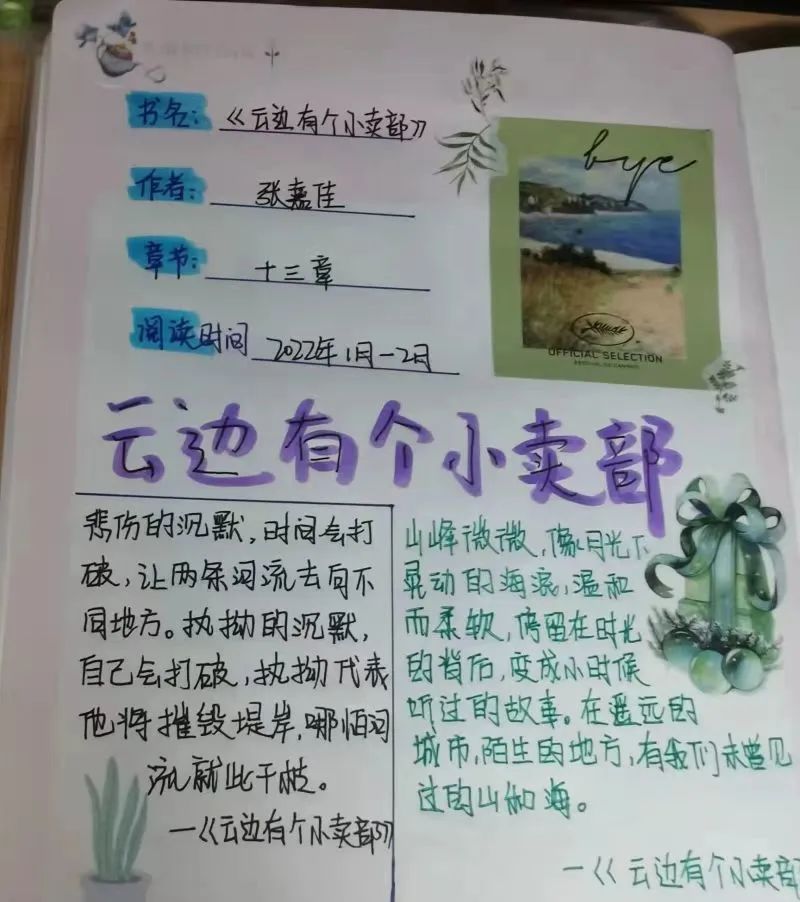 书名：《云边有个小卖部》
作者：张嘉佳
章节：十三章
阅读时间 2022年1月-2月
bye
OFFICIAL SELECTION
FESTIVAL DE CANNES
云边有个小卖部
悲伤的沉默，时间会打
破，让两条河流去向不
同地方。执拗的沉默，
自己会打破，执拗代表
他将摧毁堤岸，哪怕河
流就此干枝。
—《云边有个小卖部》
山峰微微，像月光下
晃动的海浪，温和
而柔软，停留在时光
的背后，变成小时候
听过的故事。在遥远的
城市，陌生的地方，有我们未曾见
过的山和海。
—《云边有个小卖部